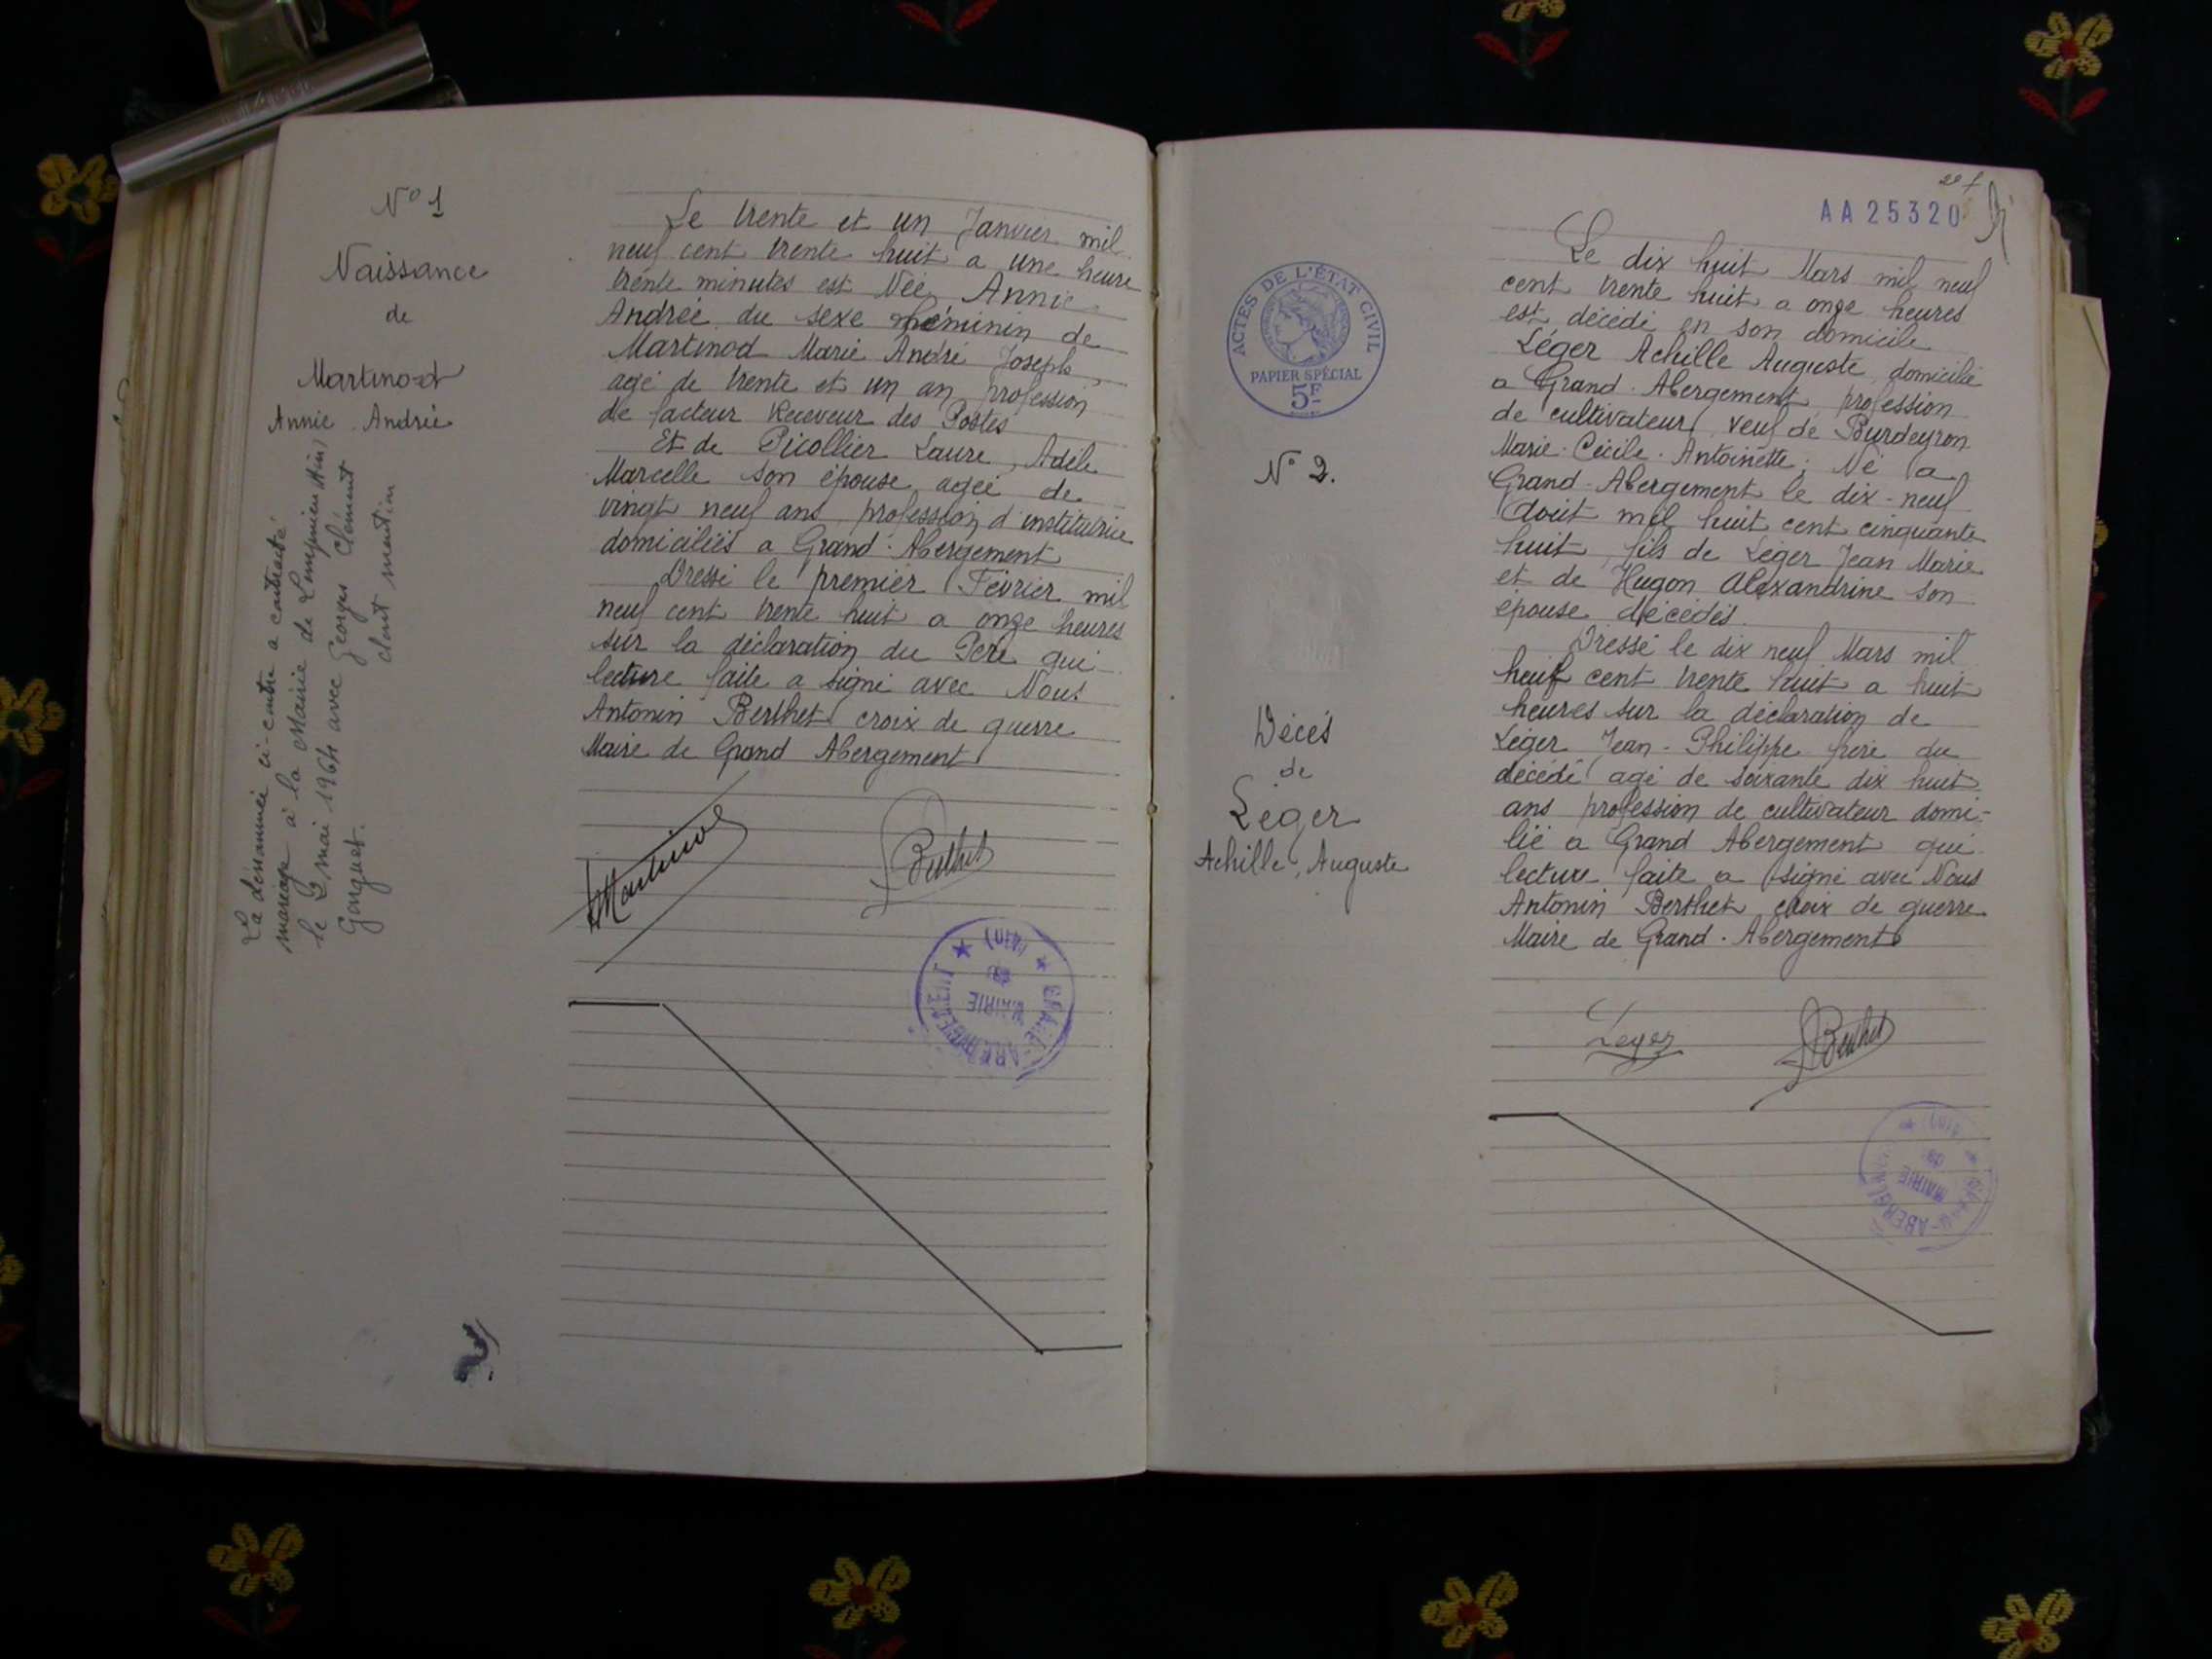 N° 1
Naissance
de
Martinod
Annie Andrée
La dénommée ci-contre a contracté
mariage à la Mairie de Lompnieu (Ain)
le 2 mai 1964 avec Georges Clément
Garguet. dont mention
Le trente et un Janvier mil
neuf cent trente huit a une heure
trente minutes est Née Annie
Andrée du sexe féminin de
Martinod Marie André Joseph
agé de trente et un an profession
de facteur Receveur des Postes
Et de Picollier Laure, Adèle
Marcelle son épouse agée de
vingt neuf ans profession d'institutrice
domiciliés a Grand-Abergement
Dressé le premier Février mil
neuf cent trente huit a onze heures
sur la déclaration du Père qui
lecture faite a signé avec Nous
Antonin Berthet croix de guerre
Maire de Grand Abergement
Martinod
Berthet
MAIRIE
DE
GRAND-ABERGEMENT
(AIN)
AA 25320
ACTES DE L'ÉTAT CIVIL
PAPIER SPÉCIAL
5F
N° 2.
Décès
de
Léger
Achille, Auguste
Le dix huit Mars mil neuf
cent trente huit a onze heures
est décédé en son domicile
Léger Achille Auguste domicilié
a Grand-Abergement profession
de cultivateur, veuf de Burdeyron
Marie-Cécile-Antoinette; Né a
Grand-Abergement le dix-neuf
Août mil huit cent cinquante
huit, fils de Léger Jean Marie
et de Hugon Alexandrine son
épouse décédés.
Dressé le dix neuf Mars mil
neuf cent trente huit a huit
heures sur la déclaration de
Léger Jean-Philippe frère du
décédé agé de soixante dix huit
ans profession de cultivateur domi-
lié a Grand Abergement qui
lecture faite a signé avec Nous
Antonin Berthet croix de guerre
Maire de Grand-Abergement
Leger
Berthet
MAIRIE
DE
GRAND-ABERGEMENT
(AIN)